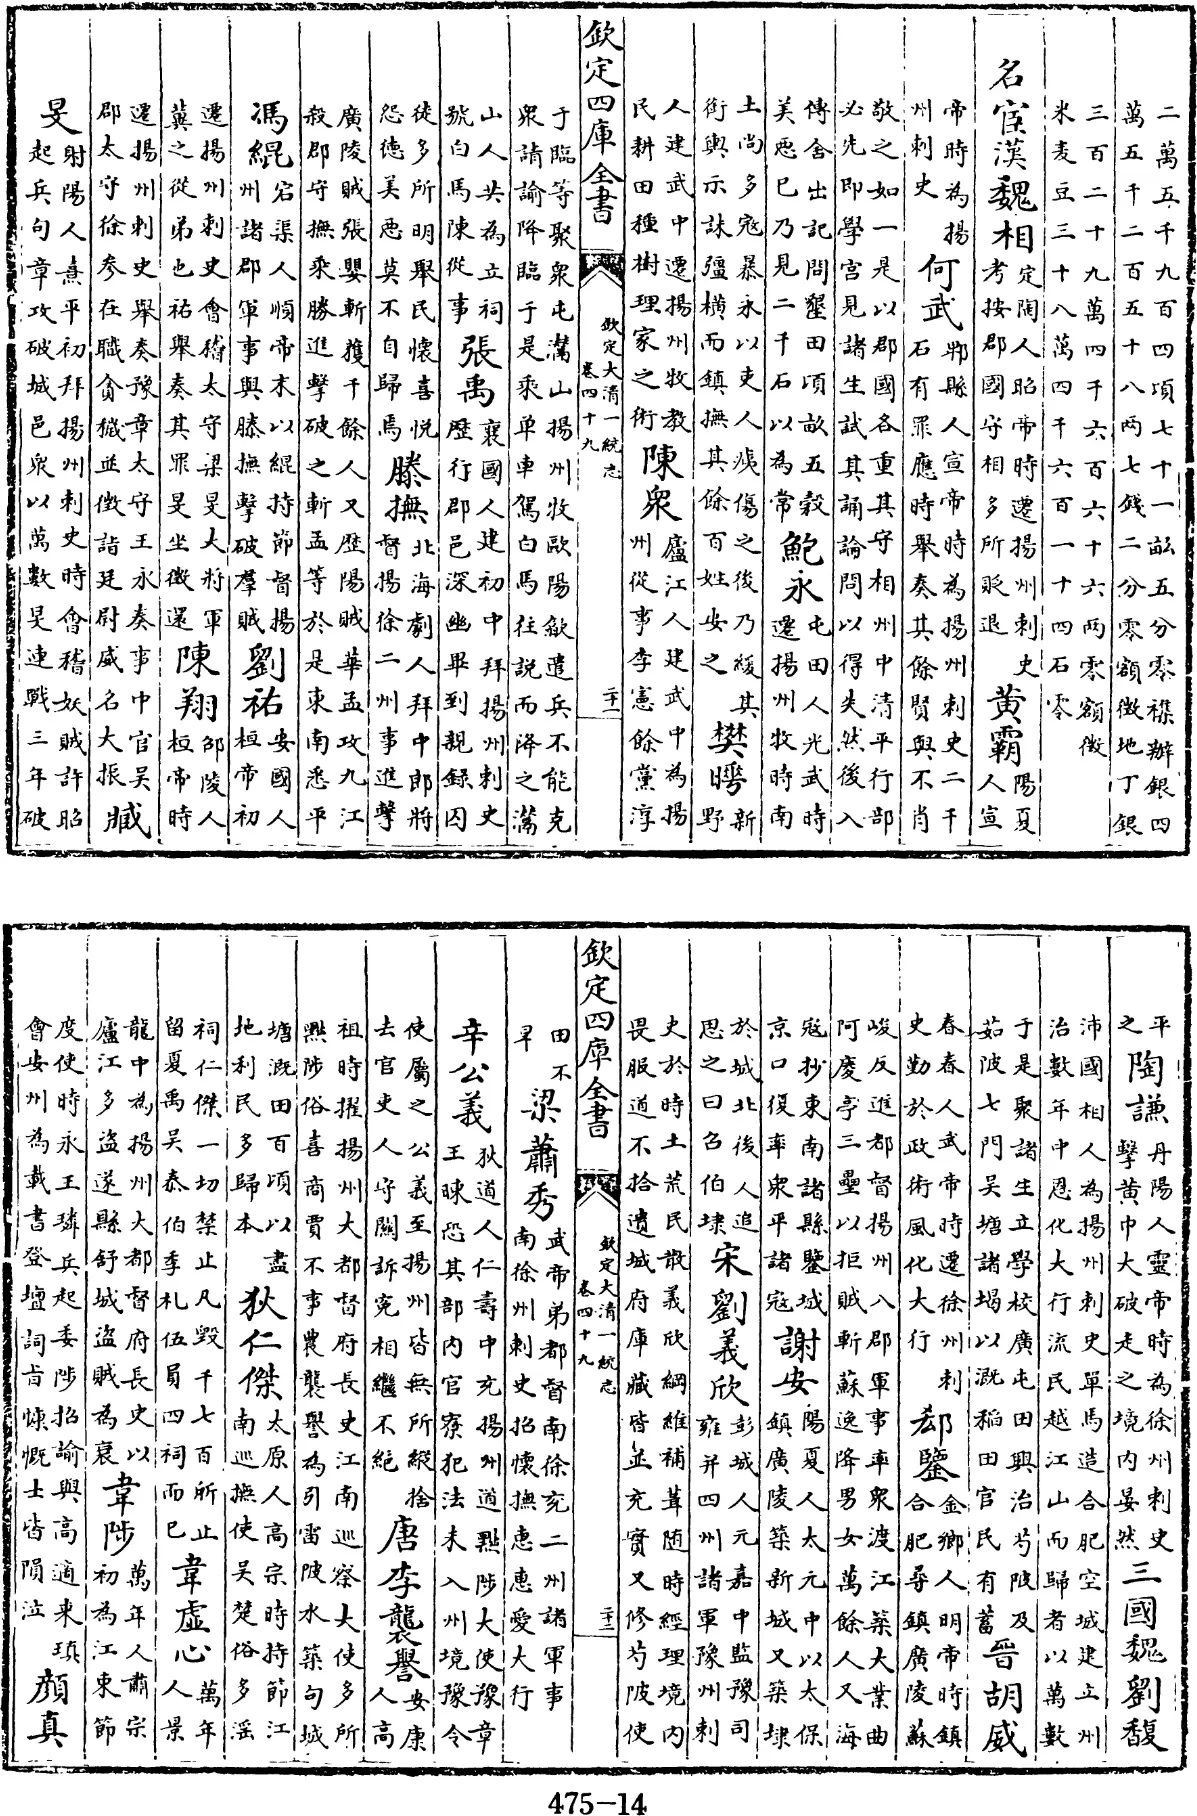 二萬五千九百四頃七十一畝五分零襍辦銀四
萬五千二百五十八兩七錢二分零額徵地丁銀
三百二十九萬四千六百六十六兩零額徵
米麦豆三十八萬四千六百一十四石零
名宦漢魏相定陶人昭帝時遷揚州刺史考按郡國守相多所貶退黄霸陽夏人宣
帝時為揚州刺史何武郫縣人宣帝時為揚州刺史二千石有罪應時舉奏其餘賢與不肖
敬之如一是以郡國各重其守相州中清平行部
必先即學宫見諸生試其誦論問以得失然後入
傳舍出記問墾田頃畝五穀美惡已乃見二千石以為常鮑永屯田人光武時遷揚州牧時南
土尚多寇暴永以吏人痍傷之後乃緩其銜轡示誅彊横而鎮撫其餘百姓安之樊曄新野
人建武中遷揚州牧教民耕田種樹理家之術陳衆廬江人建武中為揚州從事李憲餘黨淳
欽定四庫全書
欽定大清一統志
卷四十九
二十一
于臨等聚衆屯灊山揚州牧歐陽歙遣兵不能克
衆請諭降臨于是乘单車駕白馬往説而降之灊
山人共為立祠號白馬陳從事張禹襄國人建初中拜揚州刺史歴行郡邑深幽畢到親録囚
徒多所明舉民懷喜悦怨德美惡莫不自歸焉滕撫北海劇人拜中郎將督揚徐二州事進擊
廣陵賊張嬰斬獲千餘人又歴陽賊華孟攻九江
殺郡守撫乘勝進擊破之斬孟等於是東南悉平
馮緄宕渠人順帝末以緄持節督揚州諸郡軍事與滕撫擊破羣賊劉祐安國人桓帝初
遷揚州刺史會稽太守梁旻大將軍冀之從弟也祐舉奏其罪旻坐徵還陳翔邵陵人桓帝時
遷揚州刺史舉奏豫章太守王永奏事中官吴郡太守徐参在職貪穢並徵詣廷尉威名大振臧
旻射陽人熹平初拜揚州刺史時會稽妖賊許昭起兵句章攻破城邑衆以萬數旻連戰三年破
平之陶謙丹陽人靈帝時為徐州刺史擊黄巾大破走之境内晏然三國魏劉馥
沛國相人為揚州刺史單馬造合肥空城建立州
治數年中恩化大行流民越江山而歸者以萬數
于是聚諸生立學校廣屯田興治芍陂及茹陂七門吴塘諸堨以溉稻田官民有蓄晉胡威
春春人武帝時遷徐州刺史勤於政術風化大行郄鑒金鄉人明帝時鎮合肥尋鎮廣陵蘇
峻反進都督揚州八郡軍事率衆渡江築大業曲
阿庱亭三壘以拒賊斬蘇逸降男女萬餘人又海
寇抄東南諸縣鑒城京口復率衆平諸寇謝安陽夏人太元中以太保鎮廣陵築新城又築埭
於城北後人追思之曰召伯埭宋劉義欣彭城人元嘉中監豫司雍并四州諸軍豫州刺
史於時土荒民散義欣綱維補葺随時經理境内
畏服道不拾遺城府庫藏皆並充實又修芍陂使
欽定四庫全書
欽定大清一統志
卷四十九
二十二
田不旱梁蕭秀武帝弟都督南徐兖二州諸軍事南徐州刺史招懷撫惠惠愛大行
辛公義狄道人仁壽中充揚州道黜陟大使豫章王暕恐其部内官寮犯法未入州境豫令
使屬之公義至揚州皆無所縱捨去官吏人守闗訴寃相繼不絶唐李襲譽安康人高
祖時擢揚州大都督府長史江南巡察大使多所
黜陟俗喜商賈不事農襲譽為引雷陂水築句城
塘溉田百頃以盡地利民多歸本狄仁傑太原人高宗時持節江南巡撫使吴楚俗多淫
祠仁傑一切禁止凡毁千七百所止留夏禹吴泰伯季札伍員四祠而已韋虚心萬年人景
龍中為揚州大都督府長史以廬江多盗遂縣舒城盗賊為衰韋陟萬年人肅宗初為江東節
度使時永王璘兵起委陟招諭與高適来瑱會安州為載書登壇詞旨慷慨士皆隕泣顔真
475-14